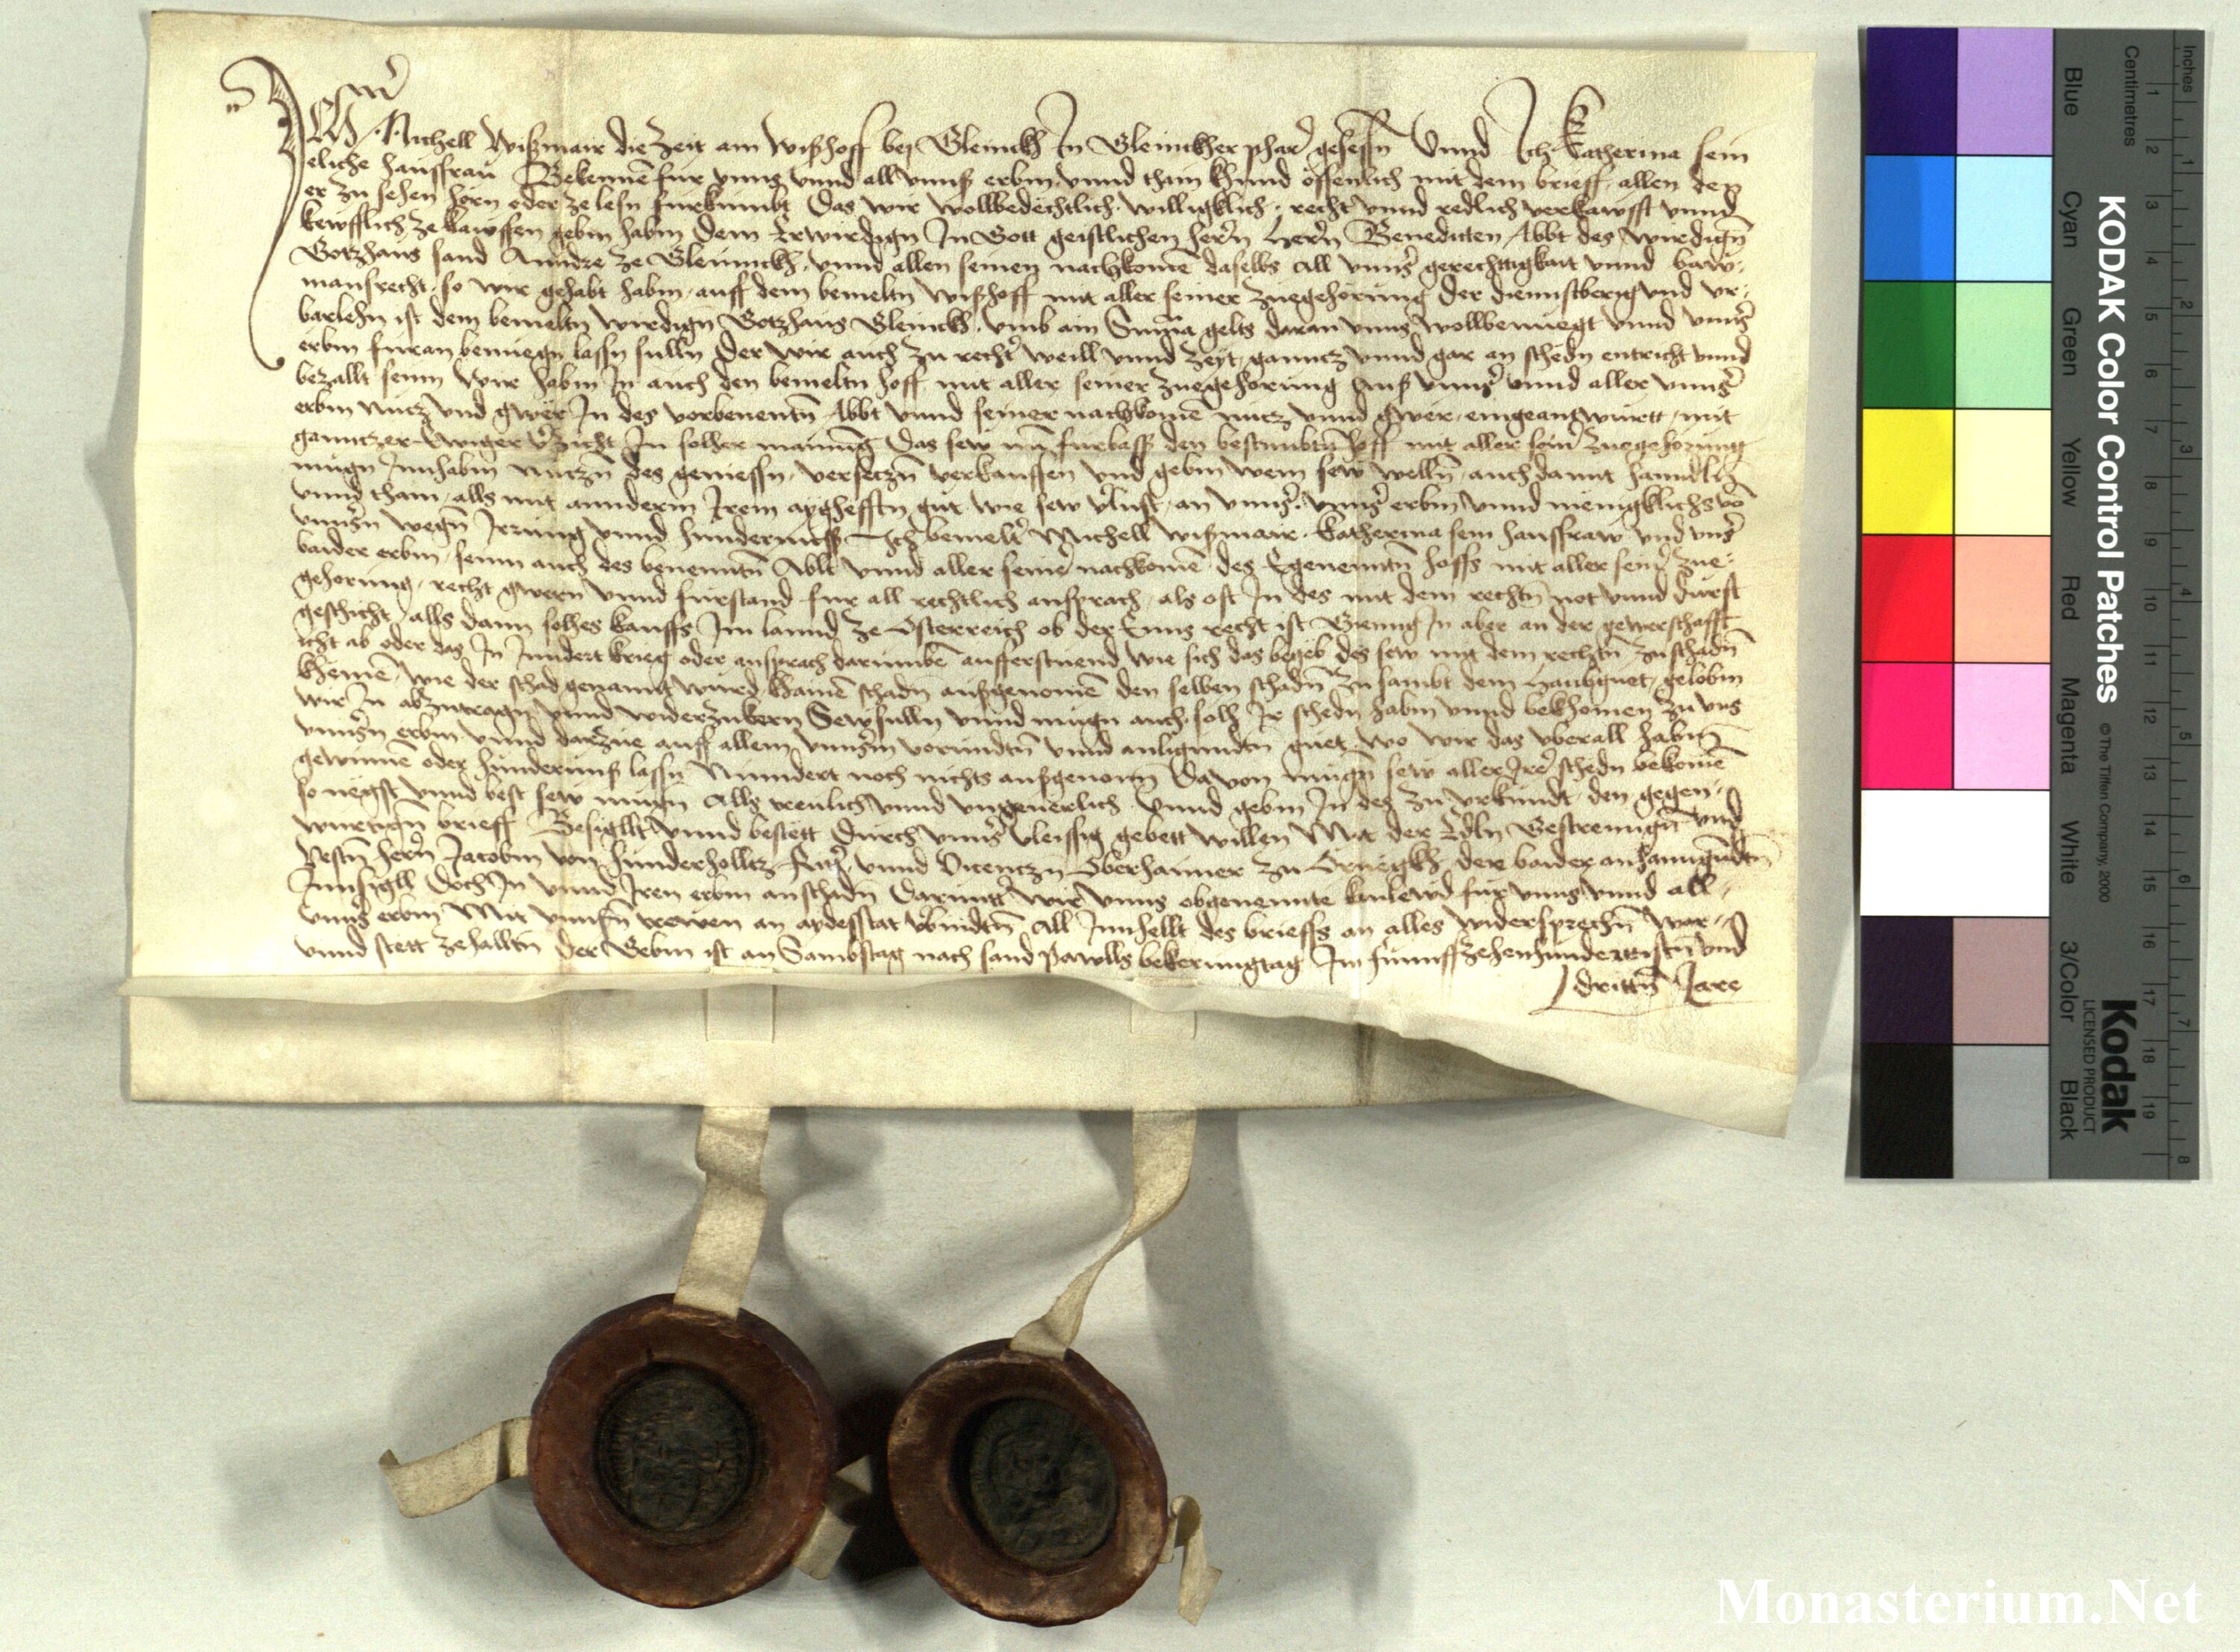 Ich Michell Wißmair die Zeit am Wißhoff bej Gleinckh In Gleinckher pharr gesessn Vnnd Ich Katherina sein
eliche hausfrau Bekennē fur vnns vnnd all vnnß erbm vnnd thain khund offenlich mit dem brieff allen den
er zu sehen hörn oder ze lesn furkumbt Das wir wollbedechtlich willigklich recht vnnd redlich verkaufft vnnd
kewfflich ze kauffen gebm habm Dem Erwirdign In Gott geistlichen herrn herrn Benedicten Abbt des wirdign
Gotzhaus sand Anndre ze Gleinnckh vnnd allen seinen nachkomē daselbs All vnnsr gerechttigkait vnnd baw-
mansrecht so wir gehabt habm auff dem bemeltn Wißhoff mit aller seiner Zuegehörung Der diennstberig vnd vr-
barlehn ist dem bemeltn wirdign Gotzhaus Gleinckh vmb ain Suma gelts daran vnns wollbenuegt vnnd vnnsr
erbm furan benuegn lassn sulln Der wir auch zu rechtr weill vnnd Zeyt ganntz vnnd gar an schedn entricht vnnd
bezallt seinn Wir habm In auch den bemeltn hoff mit aller seiner Zuegehorung Auß vnnsr vnnd aller vnnsr
erbm nutz vnd gwer In des vorbenentn Abbt vnnd seiner nachkomē nutz vnnd gwer eingeantwurtt mit
ganntzer Ewiger vrzicht In solher mainūg Das sew nū furbass den bestimbtn hoff mit aller seinr Zuegehorung
mugn Innhabm nutzn des geniessn versetzn verkauffen vnd gebm wem sew welln auch damit hanndln
vnnd thain alls mit annderm Irem ayghefftn gut wie sew vrlust an vnnsr vnnsr erbm vnnd menigklichs vō
vnnsrn wegn Irrung vnnd hindernuß Ich bemeltr Michell Wißmair Katherina sein hausfraw vnd vnsr
baider erbm seinn auch des benenntn Abbt vnnd aller seinr nachkomē des Egenenntn hoffs mit aller seinr Zue-
gehorung recht gwern vnnd furstand fur all rechtlich ansprach als oft In des mit dem rechtn not vnnd durft
geschicht alls dann solhes kauffs Im lannd ze Osterreich ob der Enns recht ist Gieng In aber an der gewerschafft
icht ab oder das In Inndert krieg oder ansprach darumbē aufferstuend wie sich das begeb des sew mit dem rechtn zu schadn
khemē wie der schad genannt wurd khainē schadn außgenomē den selben schadn zu sambt dem haubguet gelobm
wir In abzutragn vnnd widerzukern Sew sulln vnnd mugn auch solh Ir schedn habm vnnd bekhomen zu vns
vnnsrn erbm vnnd darzue auff allem vnnsrm vorundtn vnnd anligundtn guet wo wir das vberall habm
gewinnē oder hinder vnnß lassn Nynndert noch nichts außgenomn Da von mugn sew aller Irer schedn bekomē
so negst vnnd best sew mugn Alls treulich vnnd vngeuerlich Vnnd gebm In des zu vrkundt den gegen-
wurtign brieff Besigllt vnnd bestett Durch vnnsr vleissig gebett willen Mit der Edln Gestrenngn vnd
Vestn herrn Jacobm von hinderholltz Rittr vnnd Vicentzn Oberhaimer zu Grueegkh der baider anhanngundtn
Innsygll Doch In vnnd Iren erbm an schadn Daruntr wir vnns obgenennte konlewd fur vnns vnnd all
vnnsr erbm Mit vnnsrn trewen an aydesstat vrbindtn All Innhellt des brieffs an alles widersprechn war
vnnd stett zehalltn Der Gebm ist an Sambstag nach sand Pawlls bekerungtag Im funnffzehenhundertistn vnd
drittn Jare
KODAK Color Control Patches © The Tiffen Company, 2000
Kodak
LICENSED PRODUCT
Blue Cyan Green Yellow Red Magenta White 3/Color Black
Centimetres 1 2 3 4 5 6 7 8 9 10 11 12 13 14 15 16 17 18 19
Inches 1 2 3 4 5 6 7 8
Monasterium.Net